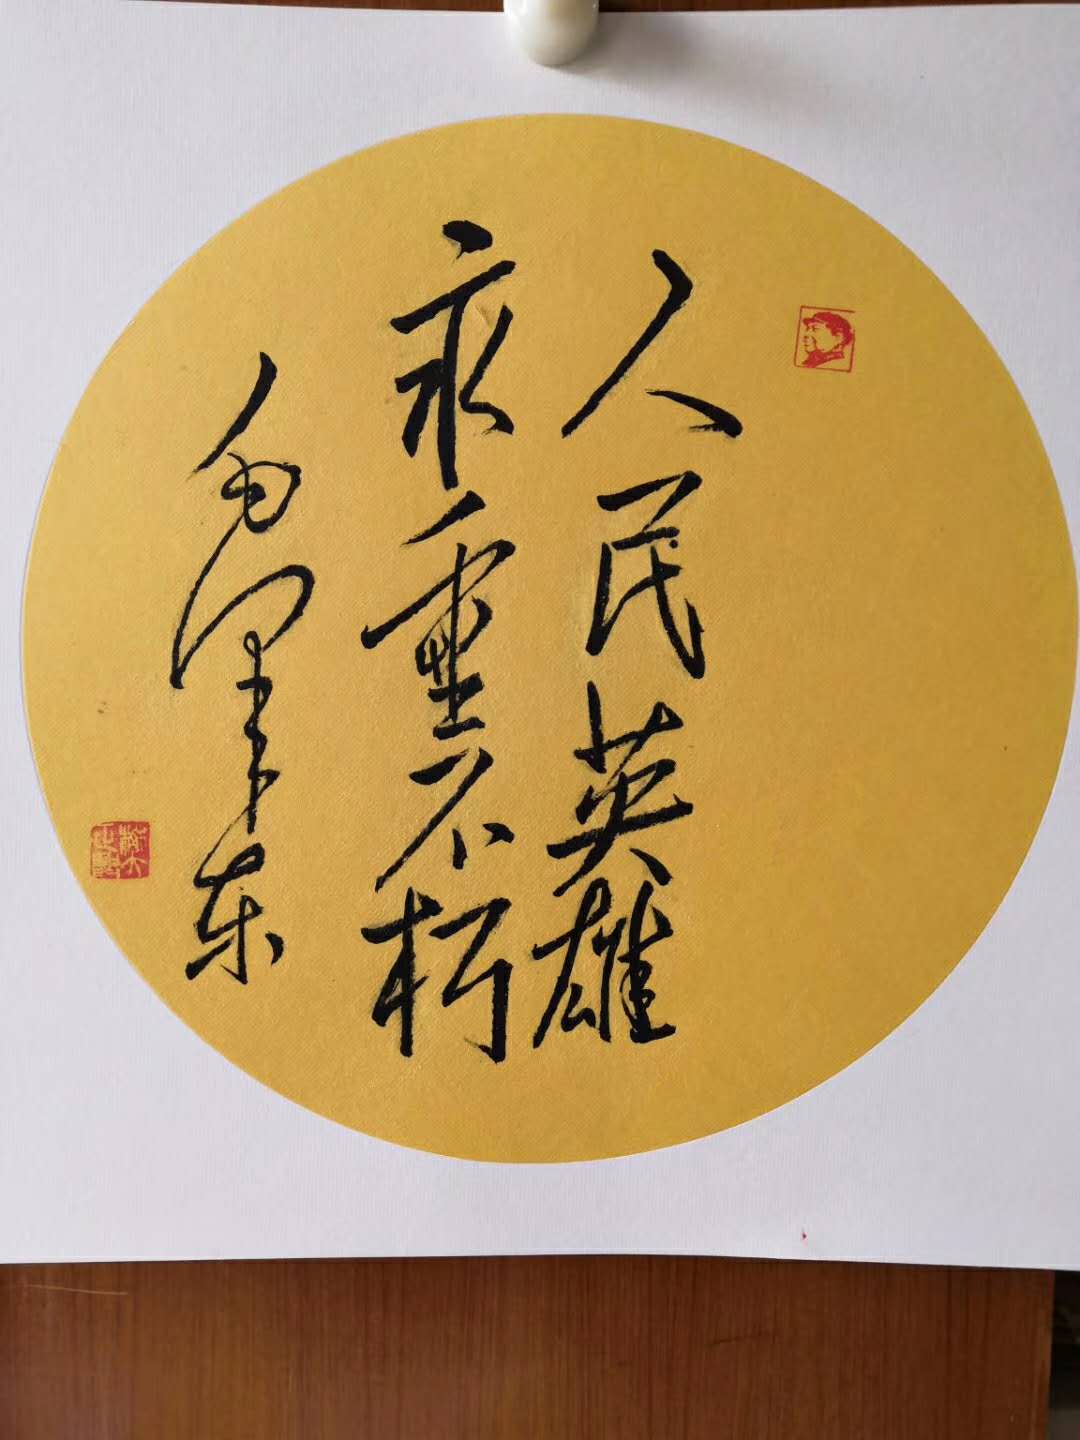 人民英雄
永垂不朽
毛泽东